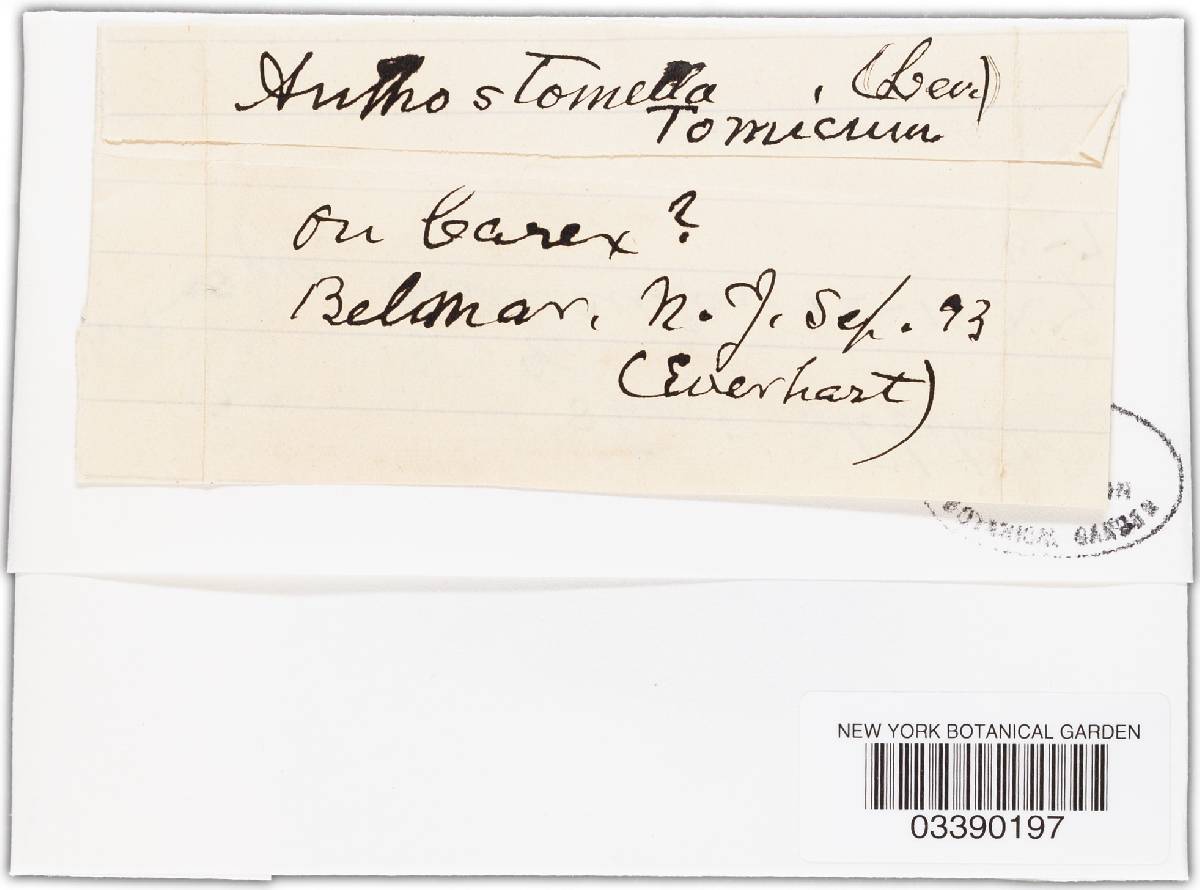 Anthostomella . (Lev.)
Tomicum
on Carex ?
Belmar. N. J. Sep. 93
(Everhart)
BOTANICAL GARDEN
NEW YORK BOTANICAL GARDEN
03390197